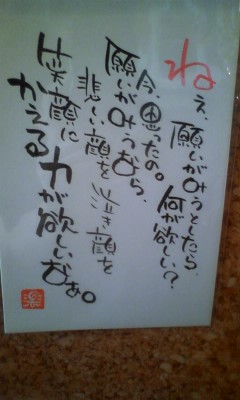 ねえ、願いが叶うとしたら、
何が欲しい?
今、思ったの。
願いが叶うなら、
悲しい顔を泣き顔を
笑顔に
かえる力が欲しいなぁ。